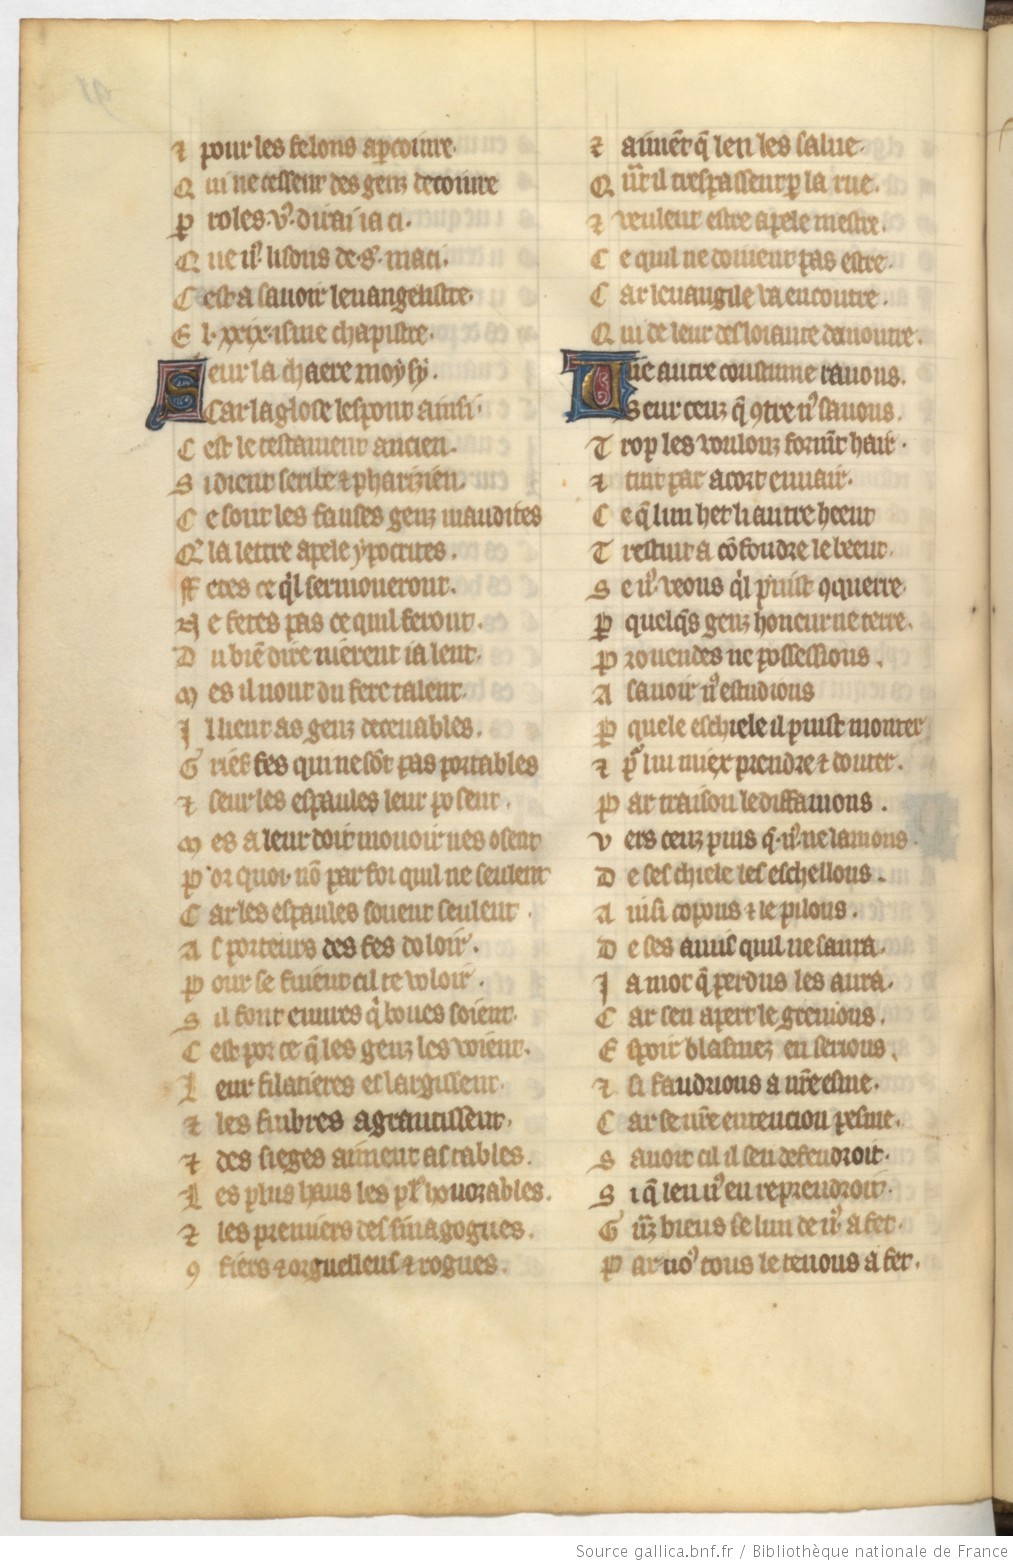 ⁊ pour les felons apcoiure.
Qui ne cessent des genz decoiure
Proles. v9. dirai ia ci.
Que n9 lisons de .s. maci.
Cest a sauoir leuangelistre.
El .xxix.isme chapistre.
Seur la chaere moysy.
Car la glose lespont ainsi.
Cest le testament ancien.
Sidient scribe ⁊ pharizien.
Ce sont les fauses genz maudites
Q la lettre apele ypocrites.
Fetes ce ql sermoneront.
Ne fetes pas ce quil feront.
Du biē dire nierent ia lent.
Mes il nont du fere talent.
Il lient as genz deceuables.
Griés fes qui ne sōt pas portables
⁊ seur les espaules leur posent.
Mes a leur doit mouoir nes osent
Por quoi. nō par foi quil ne seulent
Car les espaules souent seulent.
As porteurs des fes doloir.
Pour se fuient cil ce voloir.
Sil font euures q bones soient.
Cest por ce q les genz les voient.
Leur filatieres eslargissent.
⁊ les finbres agrandissent.
⁊ des sieges aiment as tables.
Les plus haus les pl9 honorables.
⁊ les premiers des sinagogues.
9 fiers ⁊ orguelleus ⁊ rogues.
⁊ aimēt q len les salue.
Qūt il trespassent p la rue.
⁊ veulent estre apele mestre.
Ce quil ne couient pas estre.
Car leuangile va encontre.
Qui de leur desloiaute demoutre.
Une autre coustume rauons.
Seur ceuz q 9tre n9 sauons.
Trop les voulonz formēt hair.
⁊ tuit par acort enuair.
Ce q lun het li autre heent
Trestuit a cōfondre le beent.
Se n9 veons ql puist 9querre
P quelqs genz honeur ne terre.
Prouendes ne possessions.
A sauoir n9 estudions
P quele eschiele il puist monter
⁊ p lui miex prendre ⁊ donter.
Par traison le diffamons.
Vers ceuz puis q. n9. ne lamons.
De seschiele les eschellons.
Ainsi copons ⁊ le pilons.
De ses amis quil ne saura.
Ia mot q perdus les aura.
Car sen apert le greuions.
Espoir blasmez en serions.
⁊ si faudrions a nr̄e esme.
Car se nr̄e entencion pesme.
Sauoit cil il sen defendroit.
Si q len n9 en reprendroit.
Grāz biens se lun de n9 a fet.
Par no9 tous le tenons a fet.